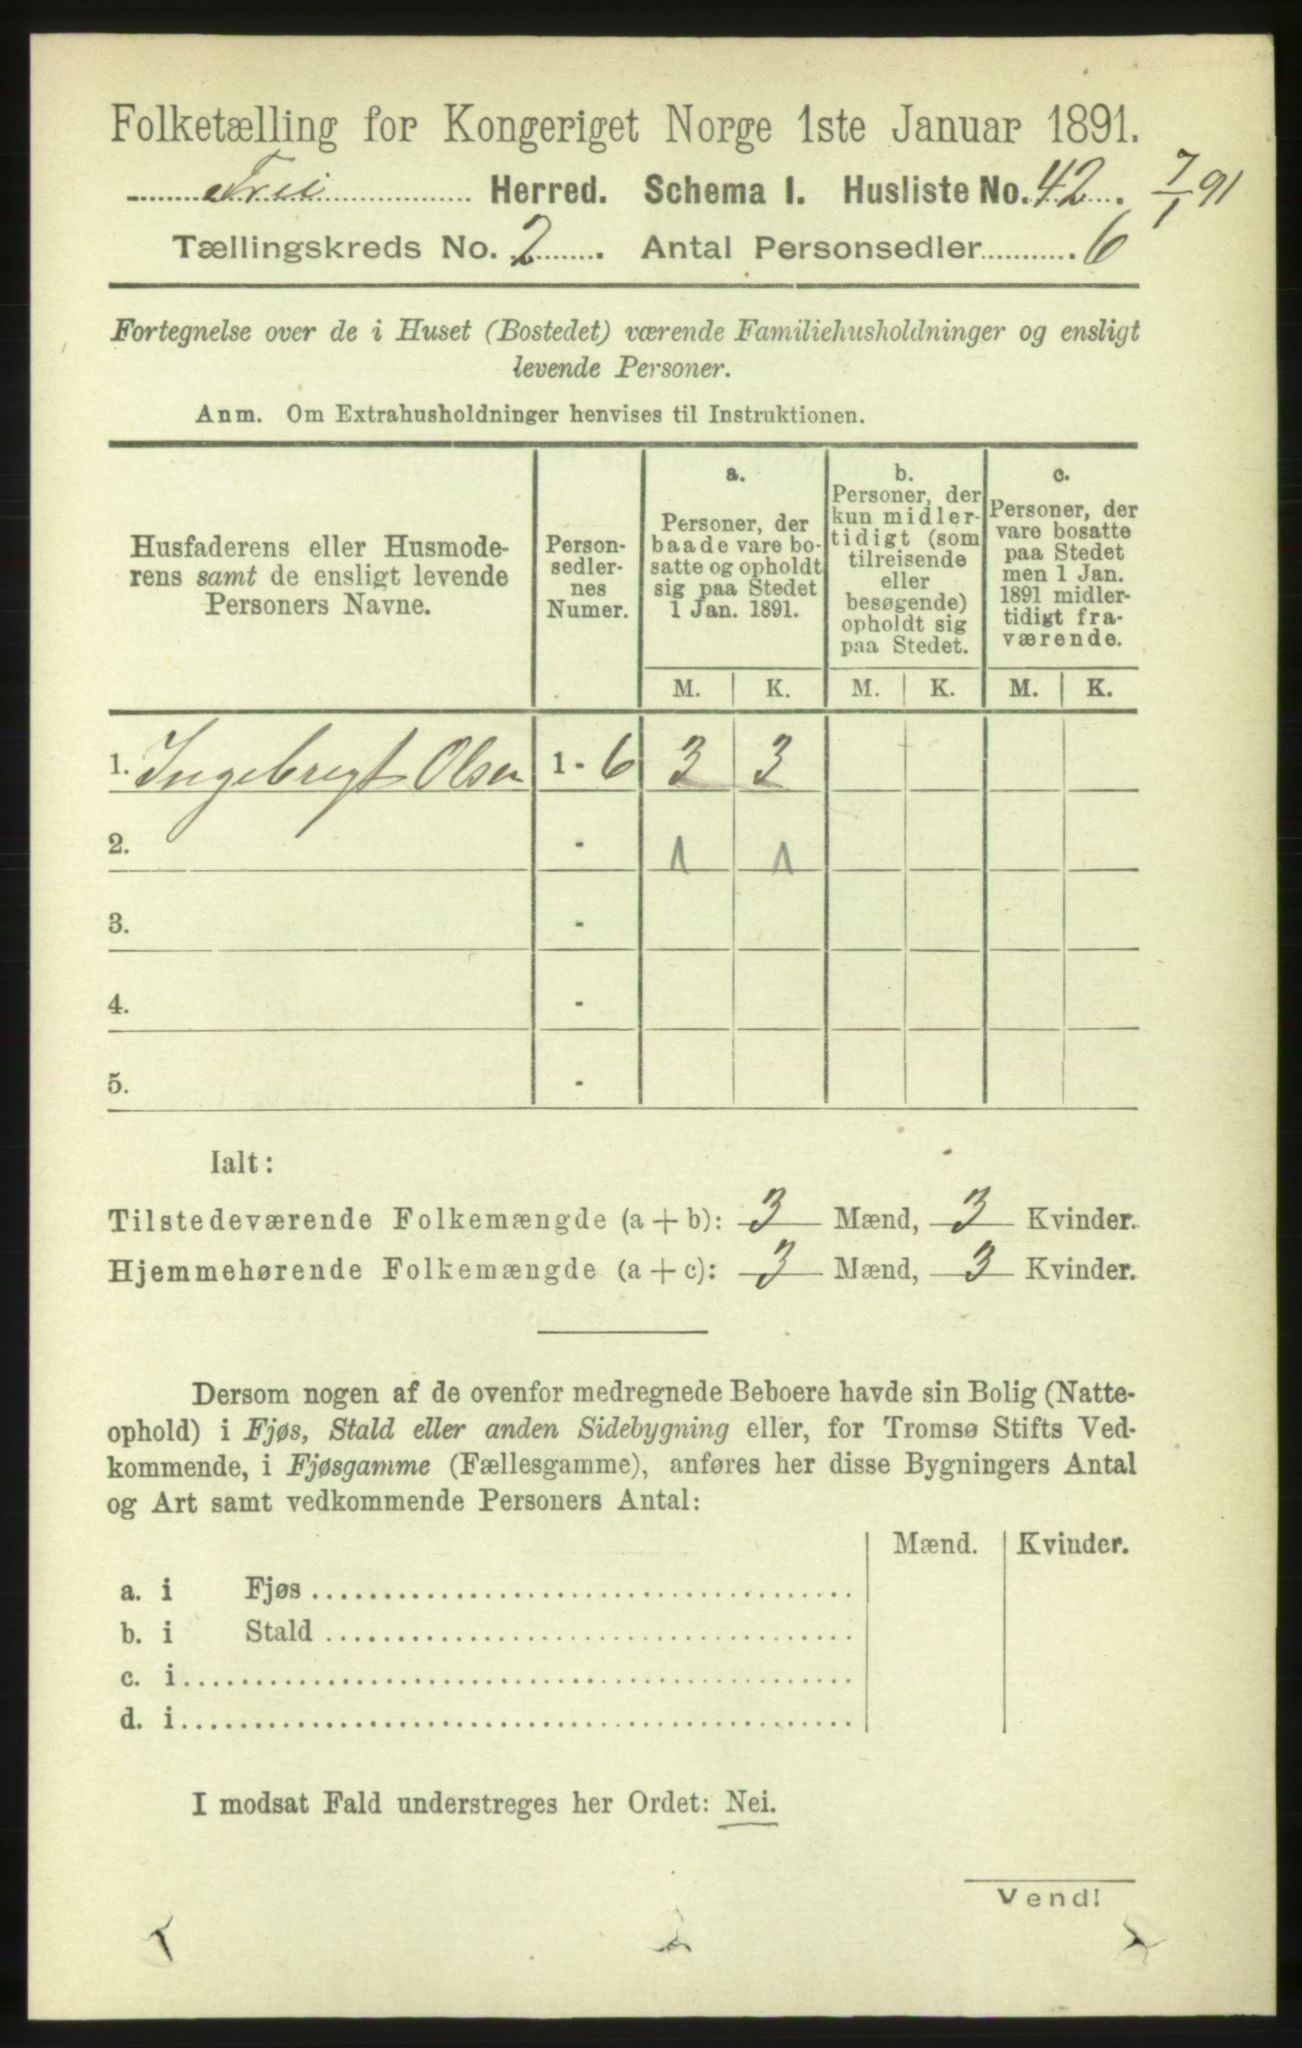 Folketælling for Kongeriget Norge 1ste Januar 1891.
Frei Herred. Schema I. Husliste No. 42. 7/1 91
Tællingskreds No. 2. Antal Personsedler 6
Fortegnelse over de i Huset (Bostedet) værende Familiehusholdninger og ensligt
levende Personer.
Anm. Om Extrahusholdninger henvises til Instruktionen.
Husfaderens eller Husmode-
rens samt de ensligt levende
Personers Navne.
Person-
sedler-
nes
Numer.
a.
Personer, der
baade vare bo-
satte og opholdt
sig paa Stedet
1 Jan. 1891.
b.
Personer, der
kun midler-
tidigt (som
tilreisende
eller
besøgende)
opholdt sig
paa Stedet.
c.
Personer, der
vare bosatte
paa Stedet
men 1 Jan.
1891 midler-
tidigt fra-
værende.
M. K. M. K. M. K.
1. Ingebrigt Olsen 1 - 6 3 3
2. - 1 1
3. -
4. -
5. -
Ialt:
Tilstedeværende Folkemængde (a + b): 3 Mænd, 3 Kvinder.
Hjemmehørende Folkemængde (a + c): 3 Mænd, 3 Kvinder.
Dersom nogen af de ovenfor medregnede Beboere havde sin Bolig (Natte-
ophold) i Fjøs, Stald eller anden Sidebygning eller, for Tromsø Stifts Ved-
kommende, i Fjøsgamme (Fællesgamme), anføres her disse Bygningers Antal
og Art samt vedkommende Personers Antal:
Mænd. Kvinder.
a. i Fjøs
b. i Stald
c. i
d. i
I modsat Fald understreges her Ordet: Nei.
Vend!